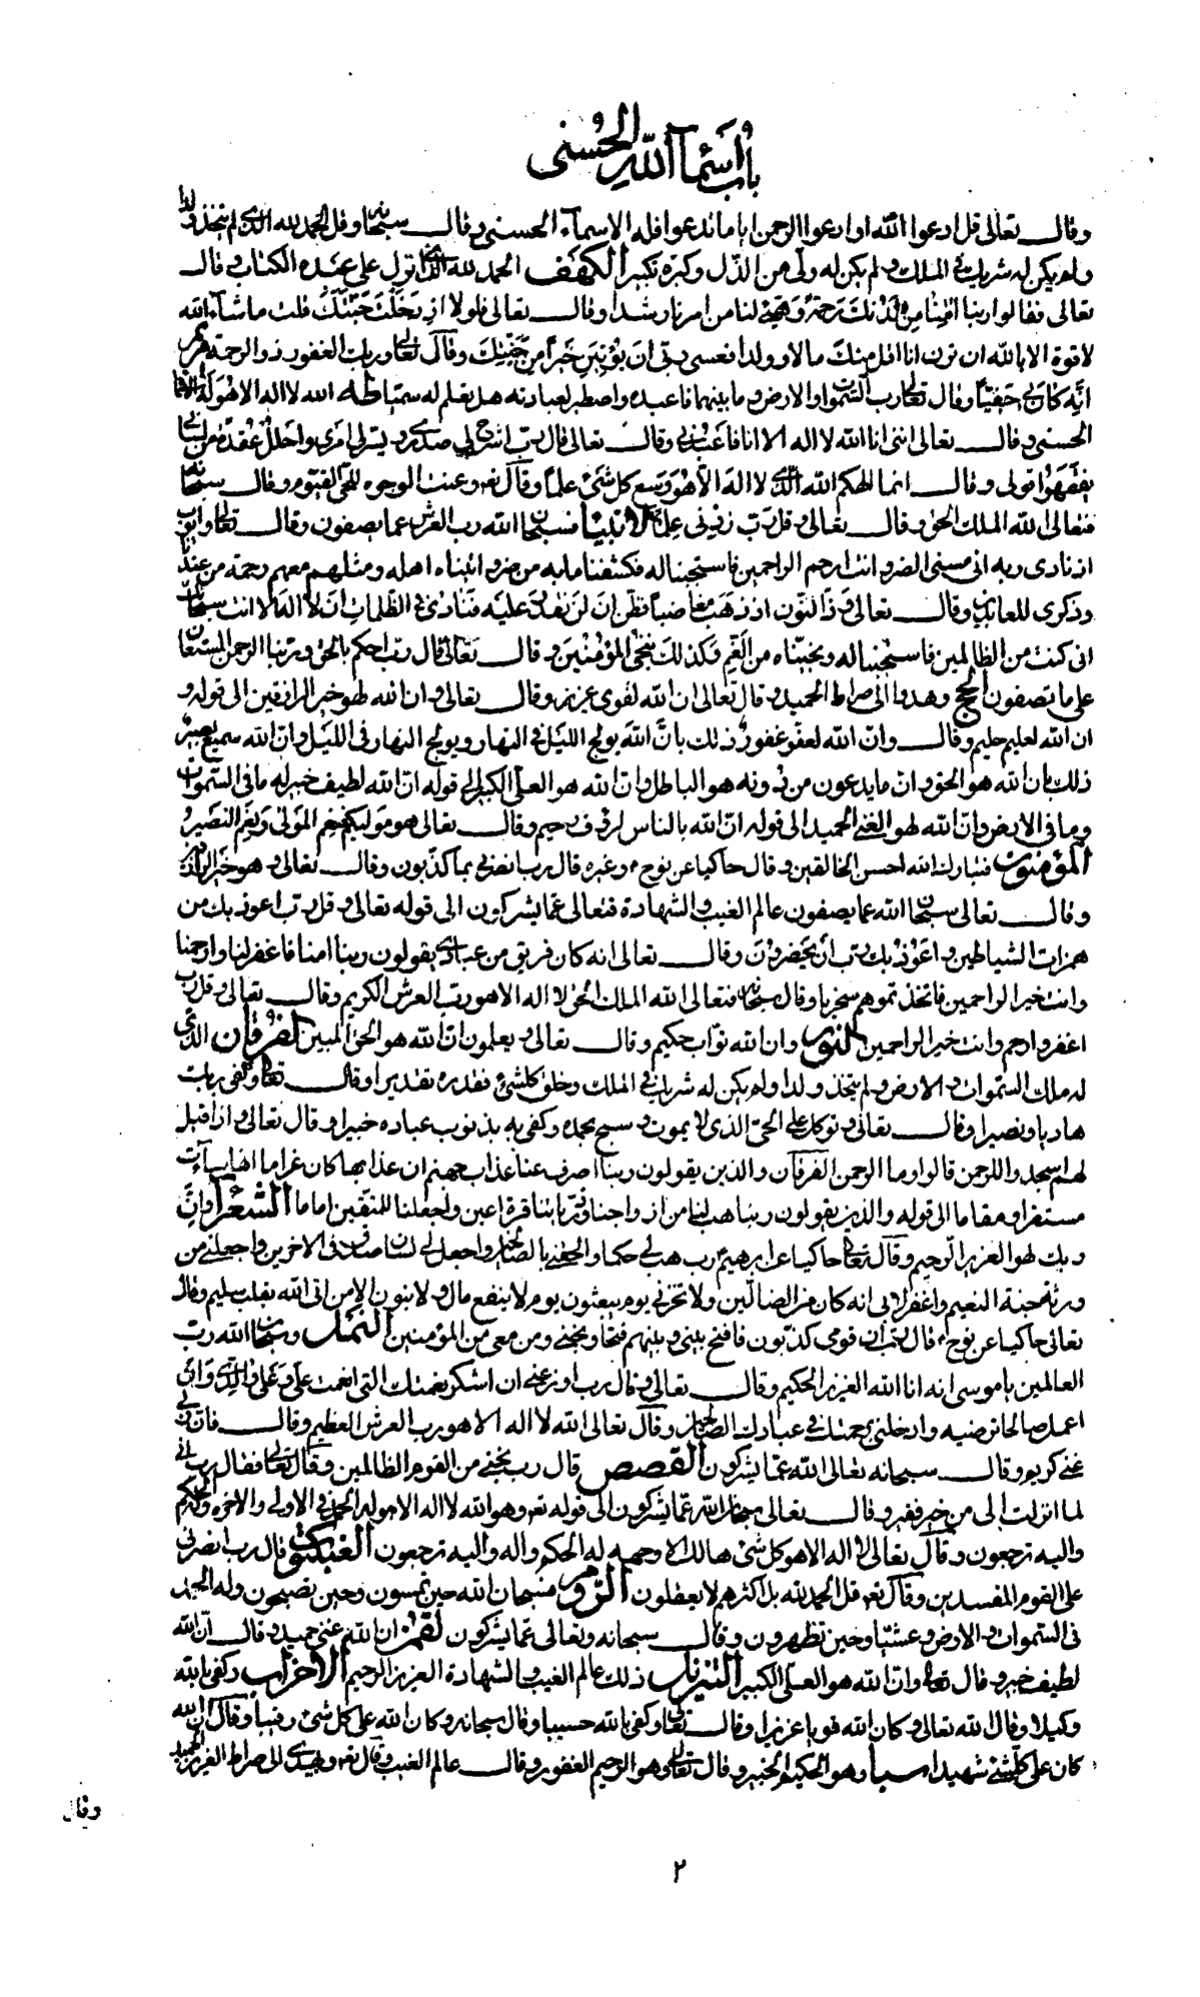 باب أسماء الله الحسنى
وقال تعالى قل ادعوا الله او ادعوا الرحمن ايا ما تدعوا فله الاسماء الحسنى وقال سبحانه وقل الحمد لله الذى لم يتخذ ولدا
ولم يكن له شريك فى الملك ولم يكن له ولى من الذل وكبره تكبيرا الكهف الحمد لله الذى انزل على عبده الكتاب وقال
تعالى فقالوا ربنا آتنا من لدنك رحمة وهيئ لنا من امرنا رشدا وقال تعالى فلولا اذ دخلت جنتك قلت ما شاء الله
لا قوة الا بالله ان ترن انا اقل منك مالا وولدا فعسى ربى ان يؤتين خيرا من جنتك وقال تعالى وربك الغفور ذو الرحمة مريم
انه كان بى حفيا وقال تعالى رب السموات والارض وما بينهما فاعبده واصطبر لعبادته هل تعلم له سميا طه الله لا اله الا هو له الاسماء
الحسنى وقال تعالى اننى انا الله لا اله الا انا فاعبدنى وقال تعالى قال رب اشرح لى صدرى ويسر لى امرى واحلل عقدة من لسانى
يفقهوا قولى وقال انما الهكم الله الذى لا اله الا هو وسع كل شئ علما وقال تعه وعنت الوجوه للحى القيوم وقال سبحانه
فتعالى الله الملك الحق وقال تعالى وقل رب زدنى علما الانبياء فسبحان الله رب العرش عما يصفون وقال تعالى وايوب
اذ نادى ربه انى مسنى الضر وانت ارحم الراحمين فاستجبنا له فكشفنا ما به من ضر وآتيناه اهله ومثلهم معهم رحمة من عندنا
وذكرى للعابدين وقال تعالى وذا النون اذ ذهب مغاضبا فظن ان لن نقدر عليه فنادى فى الظلمات ان لا اله الا انت سبحانك
انى كنت من الظالمين فاستجبنا له ونجيناه من الغم وكذلك ننجى المؤمنين وقال تعالى قال رب احكم بالحق وربنا الرحمن المستعان
على ما تصفون الحج وهدوا الى صراط الحميد وقال تعالى ان الله لقوى عزيز وقال تعالى وان الله لهو خير الرازقين الى قوله و
ان الله لعليم حليم وقال وان الله لعفو غفور ذلك بان الله يولج الليل فى النهار ويولج النهار فى الليل وان الله سميع بصير
ذلك بان الله هو الحق وان ما يدعون من دونه هو الباطل وان الله هو العلى الكبير الى قوله ان الله لطيف خبير له ما فى السموات
وما فى الارض وان الله لهو الغنى الحميد الى قوله ان الله بالناس لرؤف رحيم وقال تعالى هو موليكم فنعم المولى ونعم النصير
المؤمنون فتبارك الله احسن الخالقين وقال حاكيا عن نوح وغيره قال رب انصرنى بما كذبون وقال تعالى وهو خير الرازقين
وقال تعالى سبحان الله عما يصفون عالم الغيب والشهادة فتعالى عما يشركون الى قوله تعالى وقل رب اعوذ بك من
همزات الشياطين واعوذ بك رب ان يحضرون وقال تعالى انه كان فريق من عبادى يقولون ربنا امنا فاغفر لنا وارحمنا
وانت خير الراحمين فاتخذتموهم سخريا وقال سبحانه فتعالى الله الملك الحق لا اله الا هو رب العرش الكريم وقال تعالى وقل رب
اغفر وارحم وانت خير الراحمين النور وان الله تواب حكيم وقال تعالى ويعلمون ان الله هو الحق المبين الفرقان الذى
له ملك السموات والارض ولم يتخذ ولدا ولم يكن له شريك فى الملك وخلق كل شئ فقدره تقديرا وقال تعالى وكفى بربك
هاديا ونصيرا وقال تعالى وتوكل على الحى الذى لا يموت وسبح بحمده وكفى به بذنوب عباده خبيرا وقال تعالى واذا قيل
لهم اسجدوا للرحمن قالوا وما الرحمن الفرقان والذين يقولون ربنا اصرف عنا عذاب جهنم ان عذابها كان غراما انها ساءت
مستقرا ومقاما الى قوله والذين يقولون ربنا هب لنا من ازواجنا وذرياتنا قرة اعين واجعلنا للمتقين اماما الشعراء وان
ربك لهو العزيز الرحيم وقال تعالى حاكيا عن ابرهيم رب هب لى حكما والحقنى بالصالحين واجعل لى لسان صدق فى الاخرين واجعلنى من
ورثة جنة النعيم واغفر لابى انه كان من الضالين ولا تخزنى يوم يبعثون يوم لا ينفع مال ولا بنون الا من اتى الله بقلب سليم وقال
تعالى حاكيا عن نوح قال رب ان قومى كذبون فافتح بينى وبينهم فتحا ونجنى ومن معى من المؤمنين النمل وسبحان الله رب
العالمين يا موسى انه انا الله العزيز الحكيم وقال تعالى وقال رب اوزعنى ان اشكر نعمتك التى انعمت على وعلى والدى وان
اعمل صالحا ترضيه وادخلنى برحمتك فى عبادك الصالحين وقال تعالى الله لا اله الا هو رب العرش العظيم وقال فان ربى
غنى كريم وقال سبحانه تعالى الله عما يشركون القصص قال رب نجنى من القوم الظالمين وقال تعالى فقال رب انى
لما انزلت الى من خير فقير وقال تعالى سبحان الله عما يشركون الى قوله تعه وهو الله لا اله الا هو له الحمد فى الاولى والاخرة وله الحكم
واليه ترجعون وقال تعالى لا اله الا هو كل شئ هالك الا وجهه له الحكم واليه ترجعون العنكبوت قال رب انصرنى
على القوم المفسدين وقال تعه قل الحمد لله بل اكثرهم لا يعقلون الروم فسبحان الله حين تمسون وحين تصبحون وله الحمد
فى السموات والارض وعشيا وحين تظهرون وقال سبحانه وتعالى عما يشركون لقمن ان الله غنى حميد وقال ان الله
لطيف خبير وقال تعالى وان الله هو العلى الكبير التنزيل ذلك عالم الغيب والشهادة العزيز الرحيم الاحزاب وكفى بالله
وكيلا وقال الله تعالى وكان الله قويا عزيزا وقال تعالى وكفى بالله حسيبا وقال سبحانه وكان الله على كل شئ رقيبا وقال ان الله
كان على كل شئ شهيدا سبا وهو الحكيم الخبير وقال تعالى وهو الرحيم الغفور وقال عالم الغيب وقال تعه ويهدى الى صراط العزيز الحميد
وقال
٢